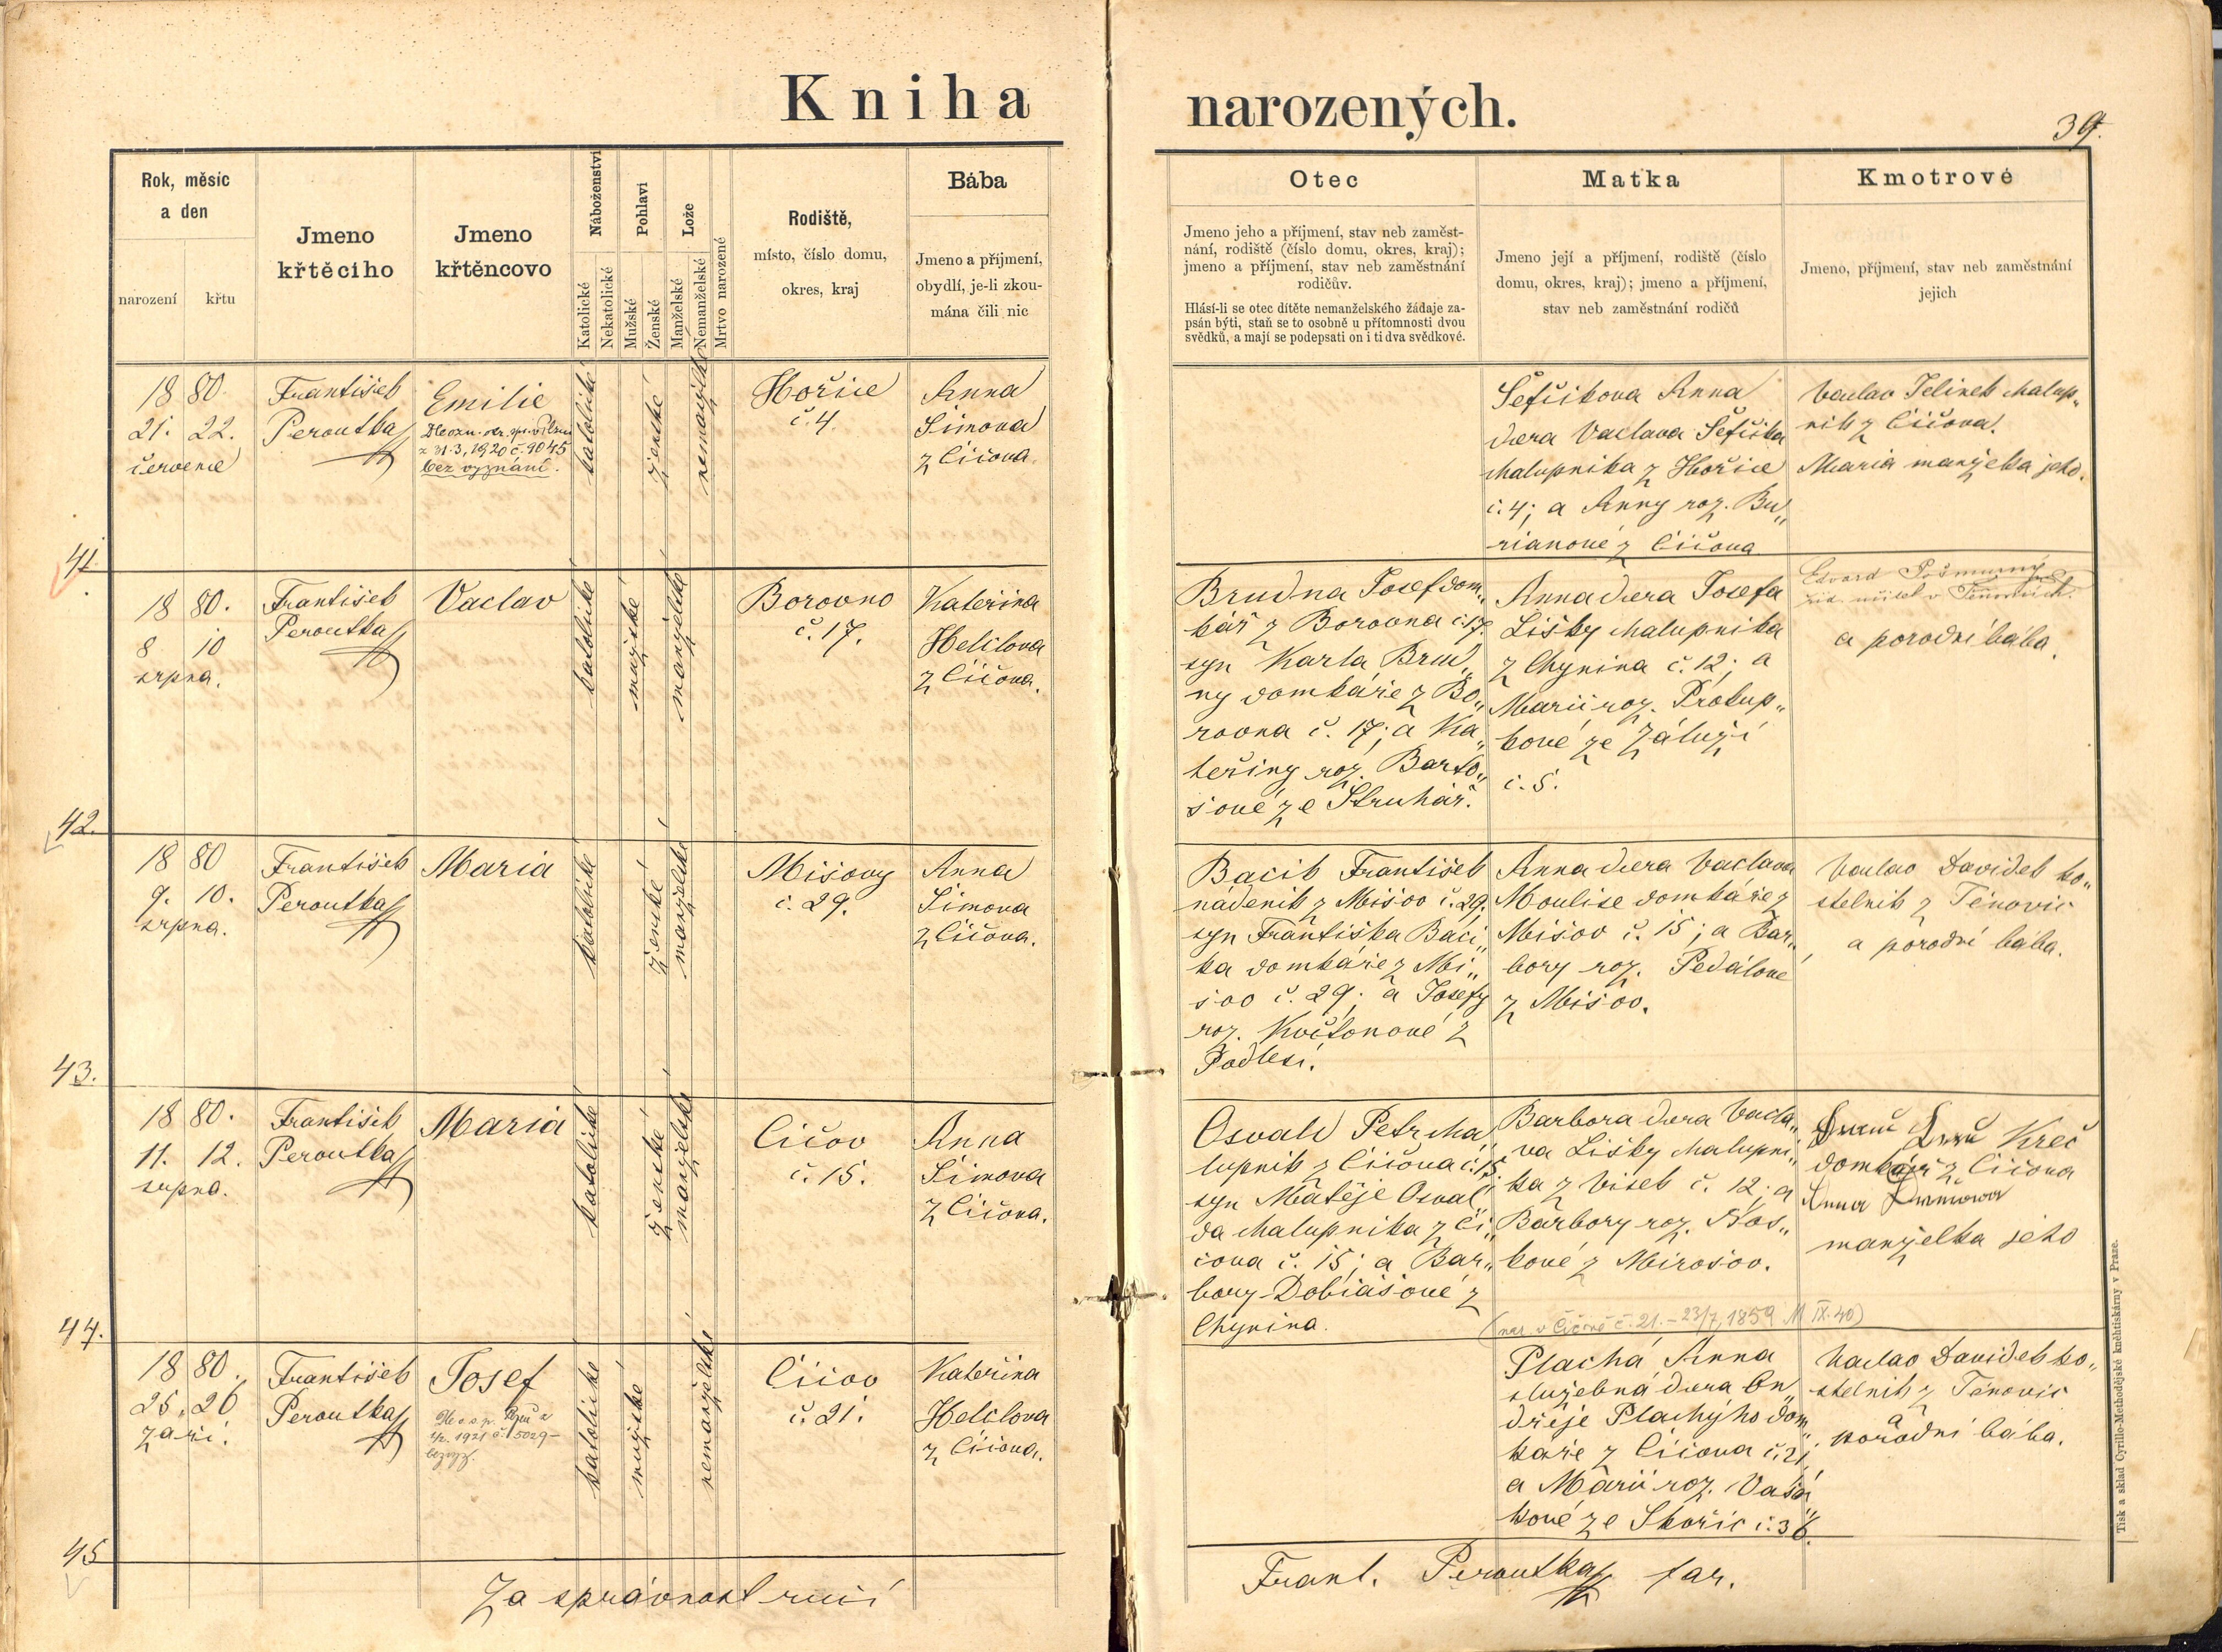 Kniha narozených.
39.
Rok, měsíc
a den
narození
křtu
Jmeno
křtěcího
Jmeno
křtěncovo
Náboženství
Katolické
Nekatolické
Pohlaví
Mužské
Ženské
Lože
Manželské
Nemanželské
Mrtvo narozené
Rodiště,
místo, číslo domu,
okres, kraj
Bába
Jmeno a příjmení,
obydlí, je-li zkou-
mána čili nic
Otec
Jmeno jeho a příjmení, stav neb zaměst-
nání, rodiště (číslo domu, okres, kraj);
jmeno a příjmení, stav neb zaměstnání
rodičův.
Hlásí-li se otec dítěte nemanželského žádaje za-
psán býti, staň se to osobně u přítomnosti dvou
svědků, a mají se podepsati on i ti dva svědkové.
Matka
Jmeno její a příjmení, rodiště (číslo
domu, okres, kraj); jmeno a příjmení,
stav neb zaměstnání rodičů
Kmotrové
Jmeno, příjmení, stav neb zaměstnání
jejich
18 80.
21. 22.
července
František
Peroutka
Emilie
z 31.3.1920 č. 9045
bez vyznání.
katolické
ženské
nemanželské
Hořice
č. 4.
Anna
Šimova
z Číčova.
Šefčikova Anna
dcera Vaclava Šefčika
chalupnika z Hořice
č. 4; a Anny roz. Bu„
rianové z Číčova
Vaclav Jelinek chalup„
nik z Číčova.
Maria manželka jeho.
41.
18 80.
8 10
srpna.
František
Peroutka
Vaclav
katolické
mužské
manželské
Borovno
č. 17.
Kateřina
Helclova
z Číčova.
Brudna Josef dom„
kář z Borovna č. 17.
syn Karla Brud„
ny domkáře z Bo„
rovna č. 17; a Ka„
teřiny roz. Barto„
šové ze Struhař.
Anna dcera Josefa
Lišky chalupnika
z Chynina č. 12; a
Marii roz. Prokup„
kové ze Záluží
č. 5.
Edvard Pošmurný
a porodní bába.
42.
18 80
9. 10.
srpna.
František
Peroutka
Maria
katolické
ženské
manželské
Mišovy
č. 29.
Anna
Šimova
z Číčova.
Bacik František
nádenik z Mišov č. 29.
syn Františka Baci„
ka domkáře z Mi„
šov č. 29; a Josefy
roz. Květonové z
Podlesí.
Anna dcera Vaclava
Moulise domkáře z
Mišov č. 15; a Bar„
bory roz. Pedálové
z Mišov.
Vaclav Davidek ko„
stelnik z Těnovic
a porodní bába.
43.
18 80.
11. 12.
srpna.
František
Peroutka
Maria
katolické
ženské
manželské
Číčov
č. 15.
Anna
Šimova
z Číčova.
Osvald Petr cha„
lupnik z Číčova č. 15
syn Matěje Osval„
da chalupnika z Čí„
čova č. 15; a Bar„
bory Dobiášové z
Chynina.
Barbora dcera Vacla„
va Lišky chalupni„
ka z Visek č. 12; a
Barbory roz. Bos„
kové z Mirošov.
Kreč
domkář z Číčova
Anna
manželka jeho
44.
(nar. v Číčově č. 21. – 23/7 1859 M IX. 40)
18 80.
25. 26
září.
František
Peroutka
Josef
1921 č. 5029 –
bez vyz.
katolické
mužské
nemanželské
Číčov
č. 21.
Kateřina
Helclova
z Číčova.
Plachá Anna
služebná dcera On„
dřeje Plachýho dom„
káře z Číčova č. 21;
a Marii roz. Vašá„
kové ze Skořic č. 36.
Vaclav Davidek ko„
stelnik z Těnovic
a
porodní bába.
45
Za správnost ručí
Frant. Peroutka far.
Tisk a sklad Cyrillo-Methodějské knihtiskárny v Praze.